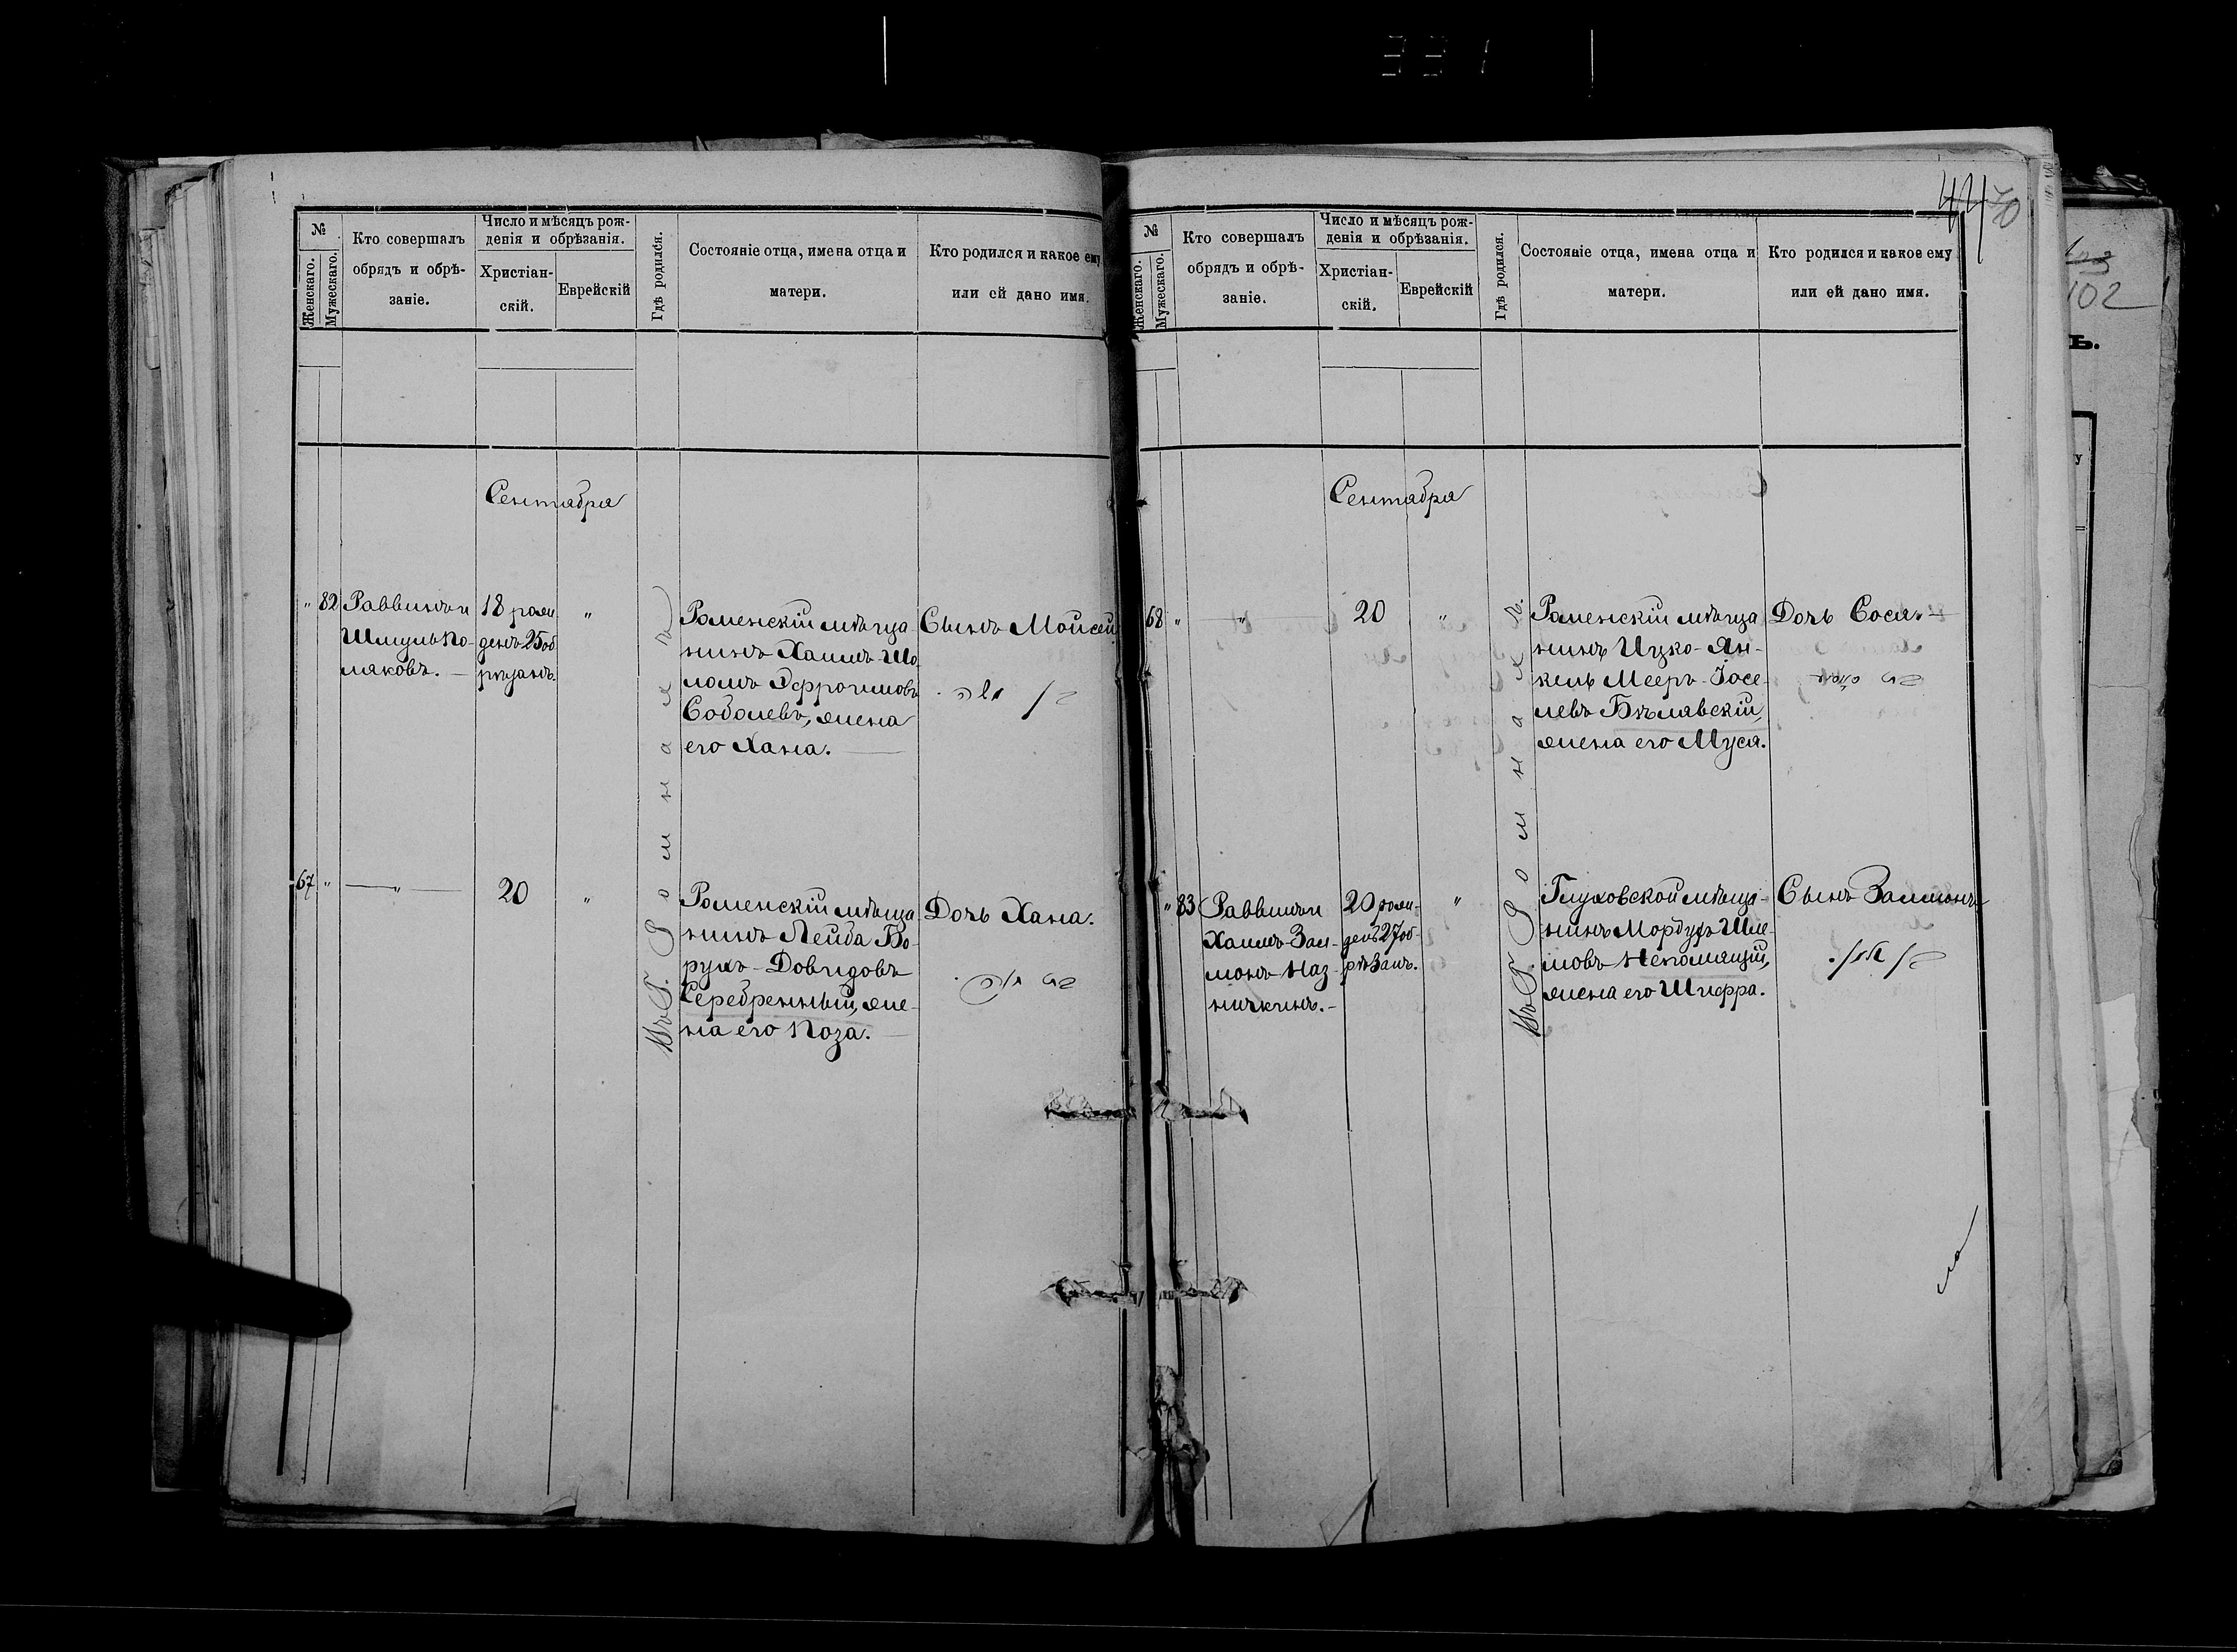 331
№
Женскаго.
Мужескаго.
Кто совершалъ
обрядъ и обрѣ-
заніе.
Число и мѣсяцъ рож-
денія и обрѣзанія.
Христіан-
скій.
Еврейскій
Гдѣ родился.
Состояніе отца, имена отца и
матери.
Кто родился и какое ему
или ей дано имя.
Сентября
" 82
Раввинъ и
Шмуль По-
ляковъ.
18 рож
денъ 25 об
рѣзанъ.
"
Роменскій мѣща
нинъ Хаимъ-Шо
ломъ Эфроимовъ
Соболевъ, жена
его Хана.
Сынъ Мойсей
67 "
"
20
"
Въ Г. Ромнахъ
Роменскій мѣща
нинъ Лейба Бо-
рухъ-Довидовъ
Серебренный, же-
на его Роза.
Дочь Хана.
44
70
№
Женскаго.
Мужескаго.
Кто совершалъ
обрядъ и обрѣ-
заніе.
Число и мѣсяцъ рож-
денія и обрѣзанія.
Христіан-
скій.
Еврейскій
Гдѣ родился.
Состояніе отца, имена отца и
матери.
Кто родился и какое ему
или ей дано имя.
Сентября
68 "
"
20
"
Роменскій мѣща
нинъ Ицко-Ян-
кель Мееръ-Іосе-
левъ Бѣлявскій,
жена его Муся.
Дочь Сося.
" 83
Раввинъ и
Хаимъ Зал-
монъ Каз-
ничкинъ.
20 рож-
денъ 27 об-
рѣзанъ.
"
Въ Г. Ромнахъ
Глуховской мѣща-
нинъ Мордухъ Шле-
мовъ Непомящій,
жена его Шифра.
Сынъ Залмонъ
102
Ъ.
у